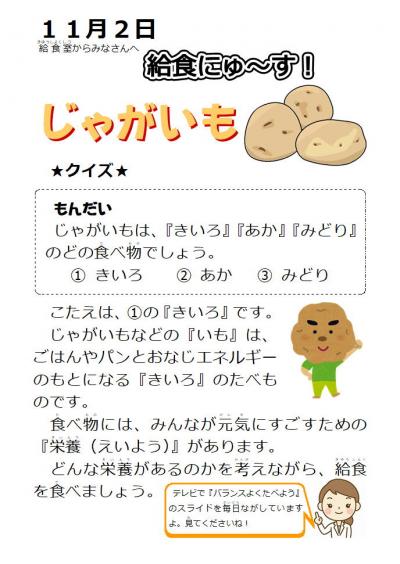 １１月２日
給食室からみなさんへ
給食にゅ～す！
じゃがいも
★クイズ★
もんだい
じゃがいもは、『きいろ』『あか』『みどり』
のどの食べ物でしょう。
① きいろ　② あか　③ みどり
こたえは、①の『きいろ』です。
じゃがいもなどの『いも』は、
ごはんやパンとおなじエネルギー
のもとになる『きいろ』のたべも
のです。
食べ物には、みんなが元気にすごすための
『栄養（えいよう）』があります。
どんな栄養があるのかを考えながら、給食
を食べましょう。
テレビで『バランスよくたべよう』
のスライドを毎日ながしています
よ。見てくださいね！